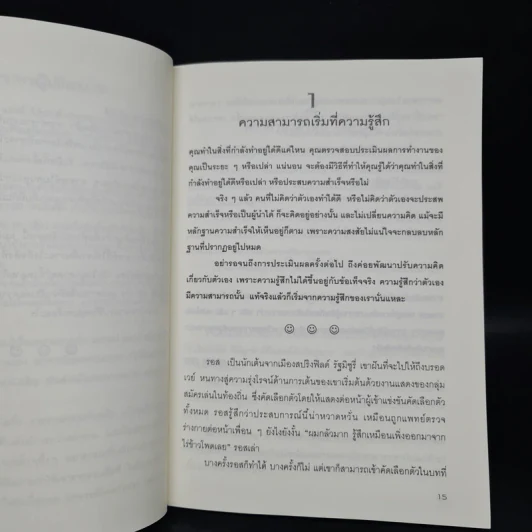 1
ความสามารถเริ่มที่ความรู้สึก
คุณทำในสิ่งที่กำลังทำอยู่ได้ดีแค่ไหน คุณตรวจสอบประเมินผลการทำงานของ
คุณเป็นระยะ ๆ หรือเปล่า แน่นอน จะต้องมีวิธีที่ทำให้คุณรู้ได้ว่าคุณทำในสิ่งที่
กำลังทำอยู่ได้ดีหรือเปล่า หรือประสบความสำเร็จหรือไม่
จริง ๆ แล้ว คนที่ไม่คิดว่าตัวเองทำได้ดี หรือไม่คิดว่าตัวเองจะประสพ
ความสำเร็จหรือเป็นผู้นำได้ ก็จะคิดอยู่อย่างนั้น และไม่เปลี่ยนความคิด แม้จะมี
หลักฐานความสำเร็จให้เห็นอยู่ก็ตาม เพราะความสงสัยไม่แน่ใจจะกลบลบหลัก
ฐานที่ปรากฏอยู่ไปหมด
อย่ารอจนถึงการประเมินผลครั้งต่อไป ถึงค่อยพัฒนาปรับความคิด
เกี่ยวกับตัวเอง เพราะความรู้สึกไม่ได้ขึ้นอยู่กับข้อเท็จจริง ความรู้สึกว่าตัวเอง
มีความสามารถนั้น แท้จริงแล้วก็เริ่มจากความรู้สึกของเรานั่นแหละ
รอส เป็นนักเต้นจากเมืองสปริงฟิลด์ รัฐมิซูรี่ เขาฝันที่จะไปให้ถึงบรอด
เวย์ หนทางสู่ความรุ่งโรจน์ด้านการเต้นของเขาเริ่มต้นด้วยงานแสดงของกลุ่ม
สมัครเล่นในท้องถิ่น ซึ่งคัดเลือกตัวโดยให้แสดงต่อหน้าผู้เข้าแข่งขันคัดเลือกตัว
ทั้งหมด รอสรู้สึกว่าประสบการณ์นี้น่าหวาดหวั่น เหมือนถูกแพทย์ตรวจ
ร่างกายต่อหน้าเพื่อน ๆ ยังไงยังงั้น "ผมกลัวมาก รู้สึกเหมือนเพิ่งออกมาจาก
ไร่ข้าวโพดเลย" รอสเล่า
บางครั้งรอสก็ทำได้ บางครั้งก็ไม่ แต่เขาก็สามารถเข้าคัดเลือกตัวในบทที่
15